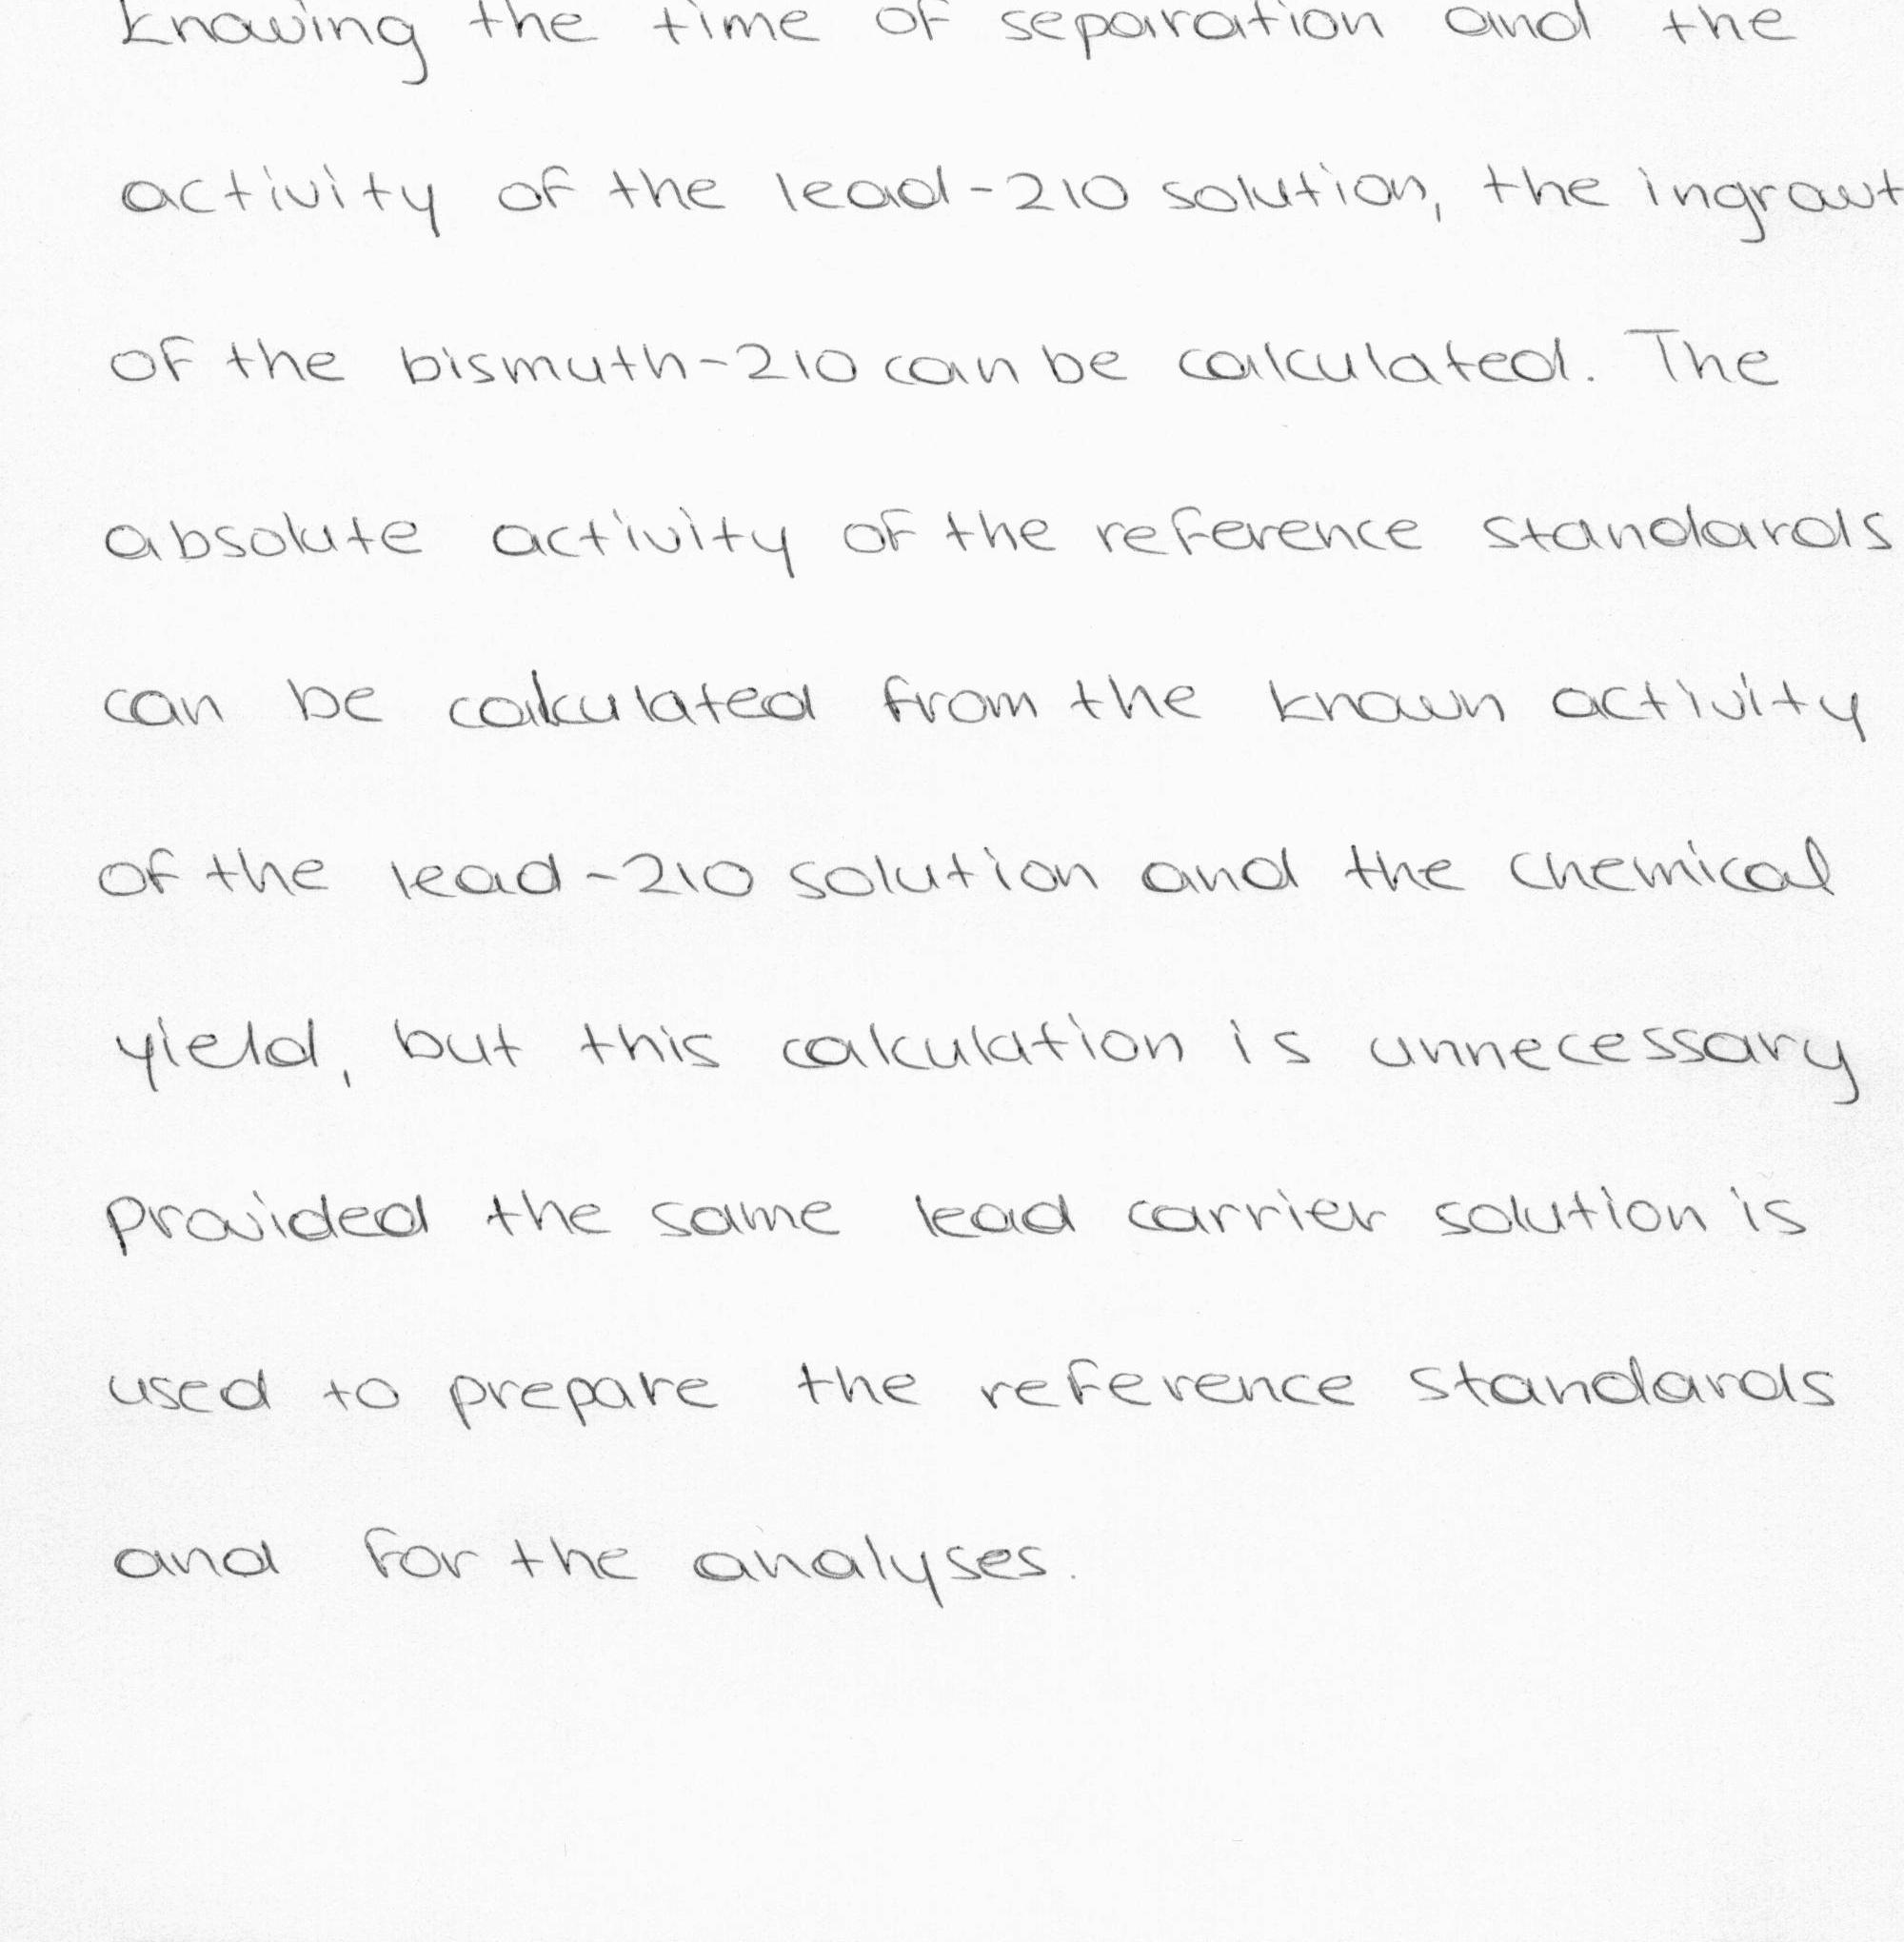 Knowing the time of separation and the
activity of the lead-210 solution, the ingrowt
of the bismuth-210 can be calculated. The
absolute activity of the reference standards
can be calculated from the known activity
of the lead-210 solution and the chemical
yield, but this calculation is unnecessary
provided the same lead carrier solution is
used to prepare the reference standards
and for the analyses.